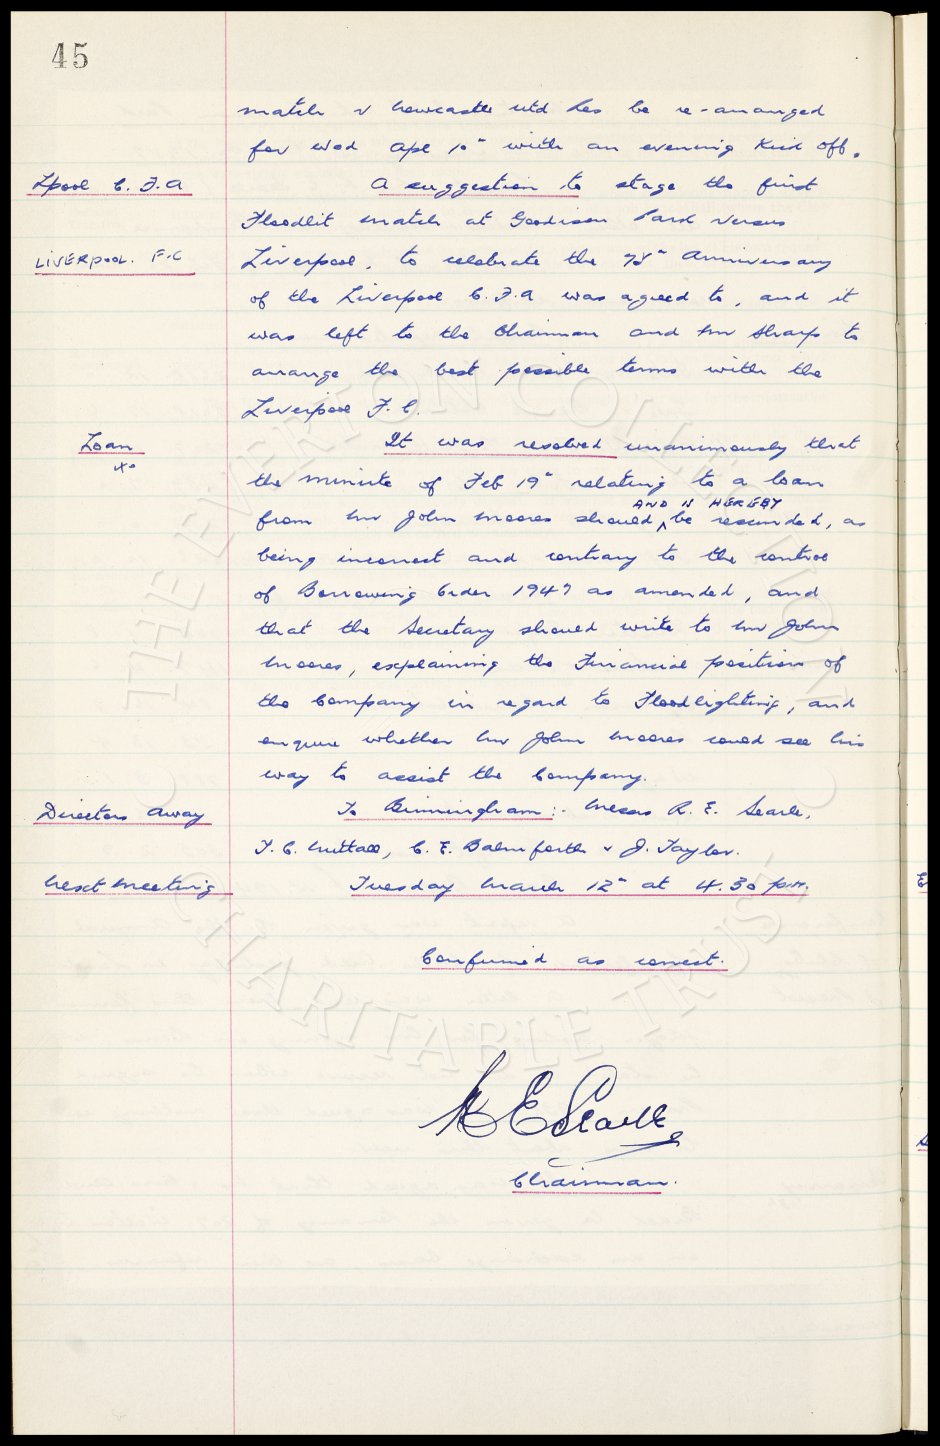 45
match v Newcastle Utd has be re-arranged
for Wed Apl 10" with an evening Kick off.
Lpool C. F. A
A suggestion to stage the first
Floodlit match at Goodison Park versus
LIVERPOOL. F.C
Liverpool, to celebrate the 75" Anniversary
of the Liverpool C. F. A was agreed to, and it
was left to the Chairman and Mr Sharp to
arrange the best possible terms with the
Liverpool F. C.
Loan
It was resolved unanimously that
the minute of Feb 19" relating to a loan
AND IS HEREBY
from Mr John Moores should ^ be rescinded, as
being incorrect and contrary to the control
of Borrowing Order 1947 as amended, and
that the Secretary should write to Mr John
Moores, explaining the Financial position of
the Company in regard to Floodlighting, and
enquire whether Mr John Moores could see his
way to assist the Company.
Directors Away
To Birmingham :- Messrs R. E. Searle,
T. C. Nuttall, C. E. Balmforth & J. Taylor.
Next Meeting
Tuesday March 12" at 4.30 p.m.
Confirmed as correct.
R E Searle
Chairman.
THE EVERTON COLLECTION CHARITABLE TRUST